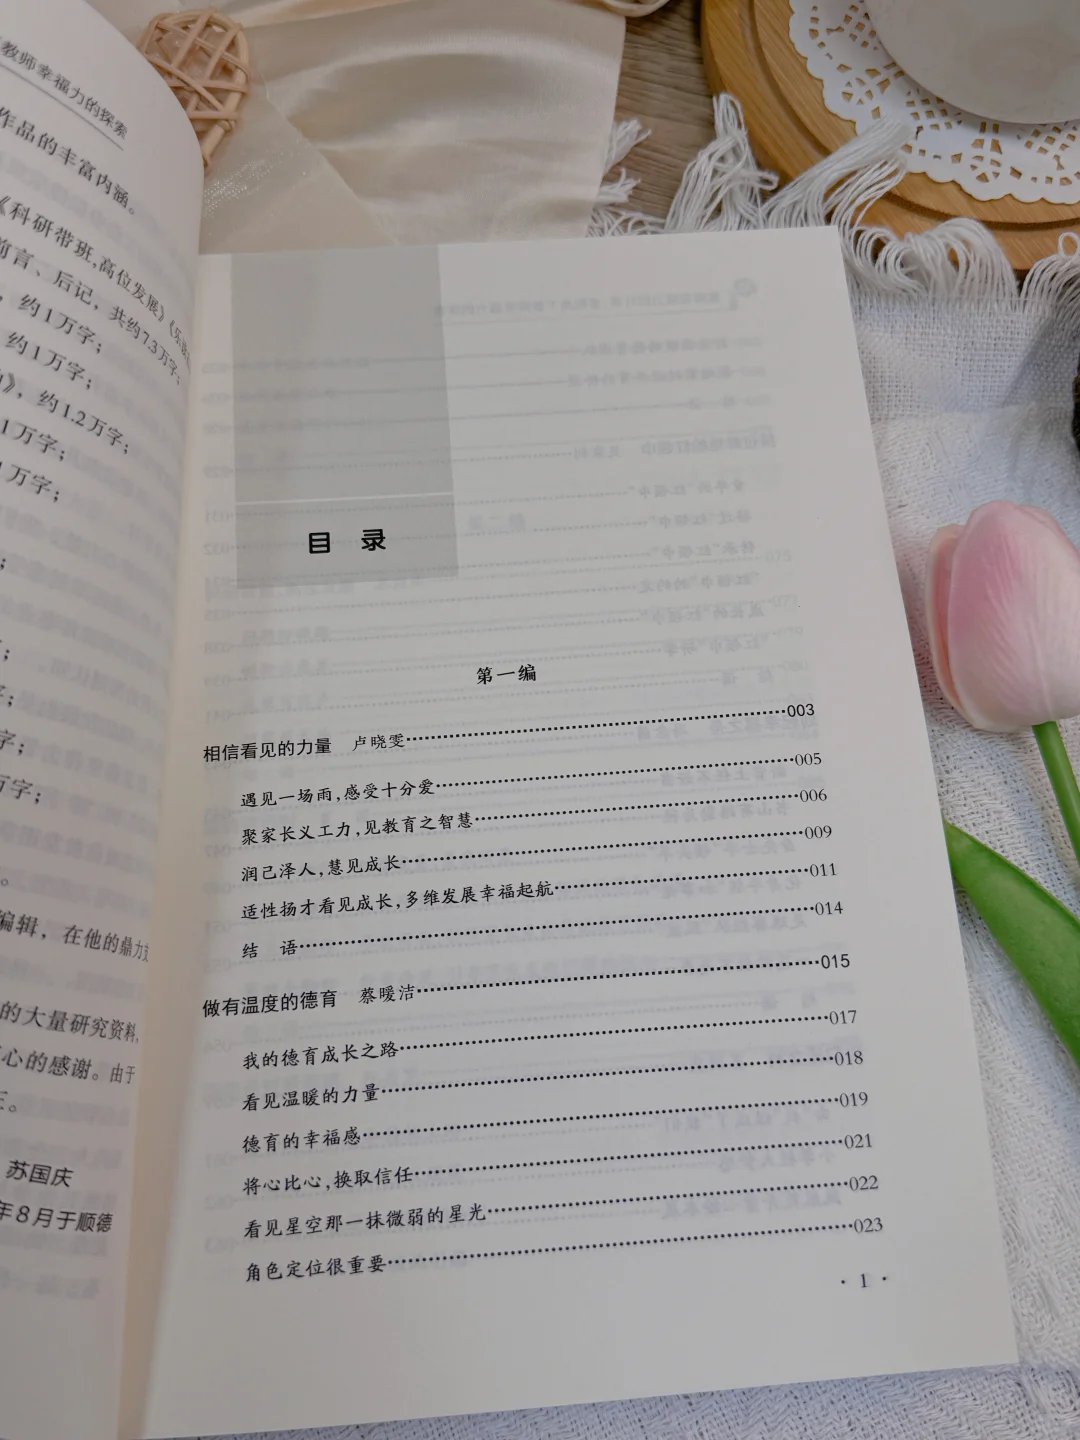 教师幸福力的探索
作品的丰富内涵。
《科研带班,高位发展》《乐
前言、后记，共约7.3万字；
，约1万字；
约1万字；
》，约1.2万字；
1万字；
万字；
字；
字；
万字；
编辑，在他的鼎力
的大量研究资料,
心的感谢。由于
正。
苏国庆
年8月于顺德
目 录
第一编
相信看见的力量 卢晓雯……003
遇见一场雨,感受十分爱……005
聚家长义工力,见教育之智慧……006
润己泽人,慧见成长……009
适性扬才看见成长,多维发展幸福起航……011
结 语……014
做有温度的德育 蔡暖洁……015
我的德育成长之路……017
看见温暖的力量……018
德育的幸福感……019
将心比心,换取信任……021
看见星空那一抹微弱的星光……022
角色定位很重要……023
· 1 ·